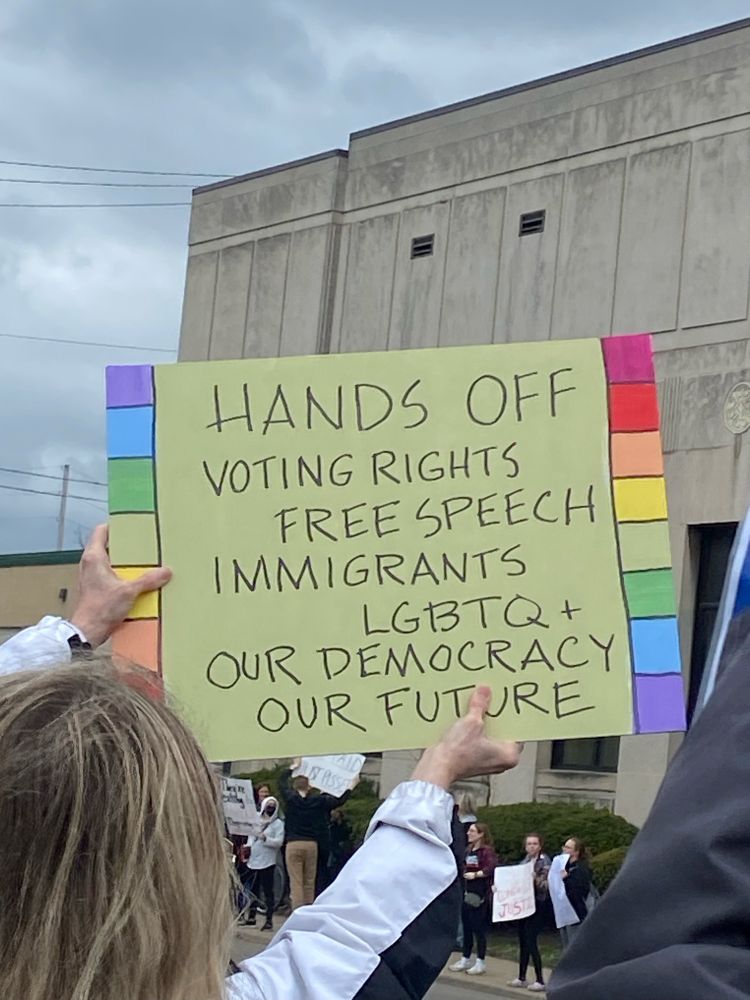 HANDS OFF
VOTING RIGHTS
FREE SPEECH
IMMIGRANTS
LGBTQ+
OUR DEMOCRACY
OUR FUTURE